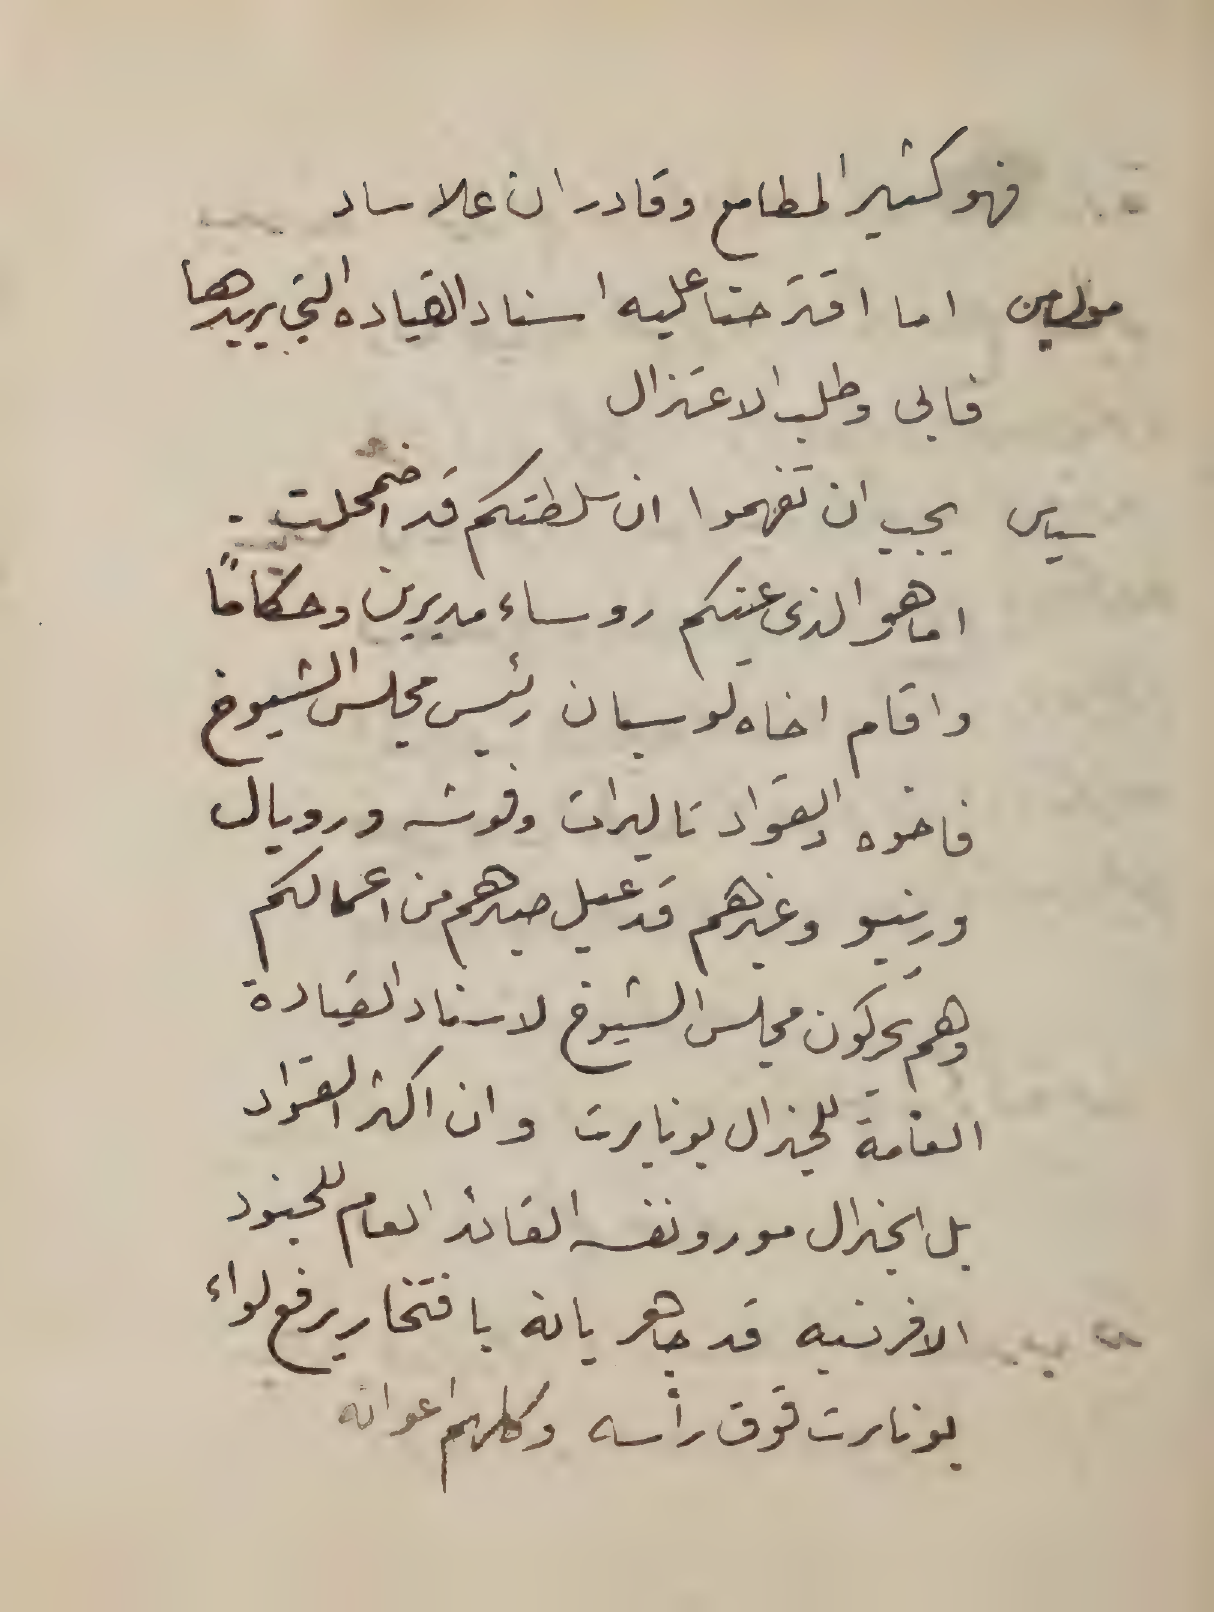 فهو كثير المطامع وقادر ان علا ساد
مولين اما اقترحنا عليه اسناد القياده التي يريدها
فابى وطلب الاعتزال
سياس يجب ان تفهموا ان سلطتكم قد اضمحلت
اما هو الذى عينكم روساء مديرين وحكامًا
واقام اخاه لوسيان رئيس مجلس الشيوخ
فاخوه والقواد تاليرات وفوشه ورويال
ورينيو وغيرهم قد عيل صبرهم من اعمالكم
وهم يحركون مجلس الشيوخ لاسناد القيادة
العامة للجنرال بونابرت وان اكثر القواد
بل الجنرال مورو نفسه القائد العام للجنود
الافرنسيه قد جاهر بانه بافتخار يرفع لواء
بونابرت فوق رأسه وكلهم اعوانه